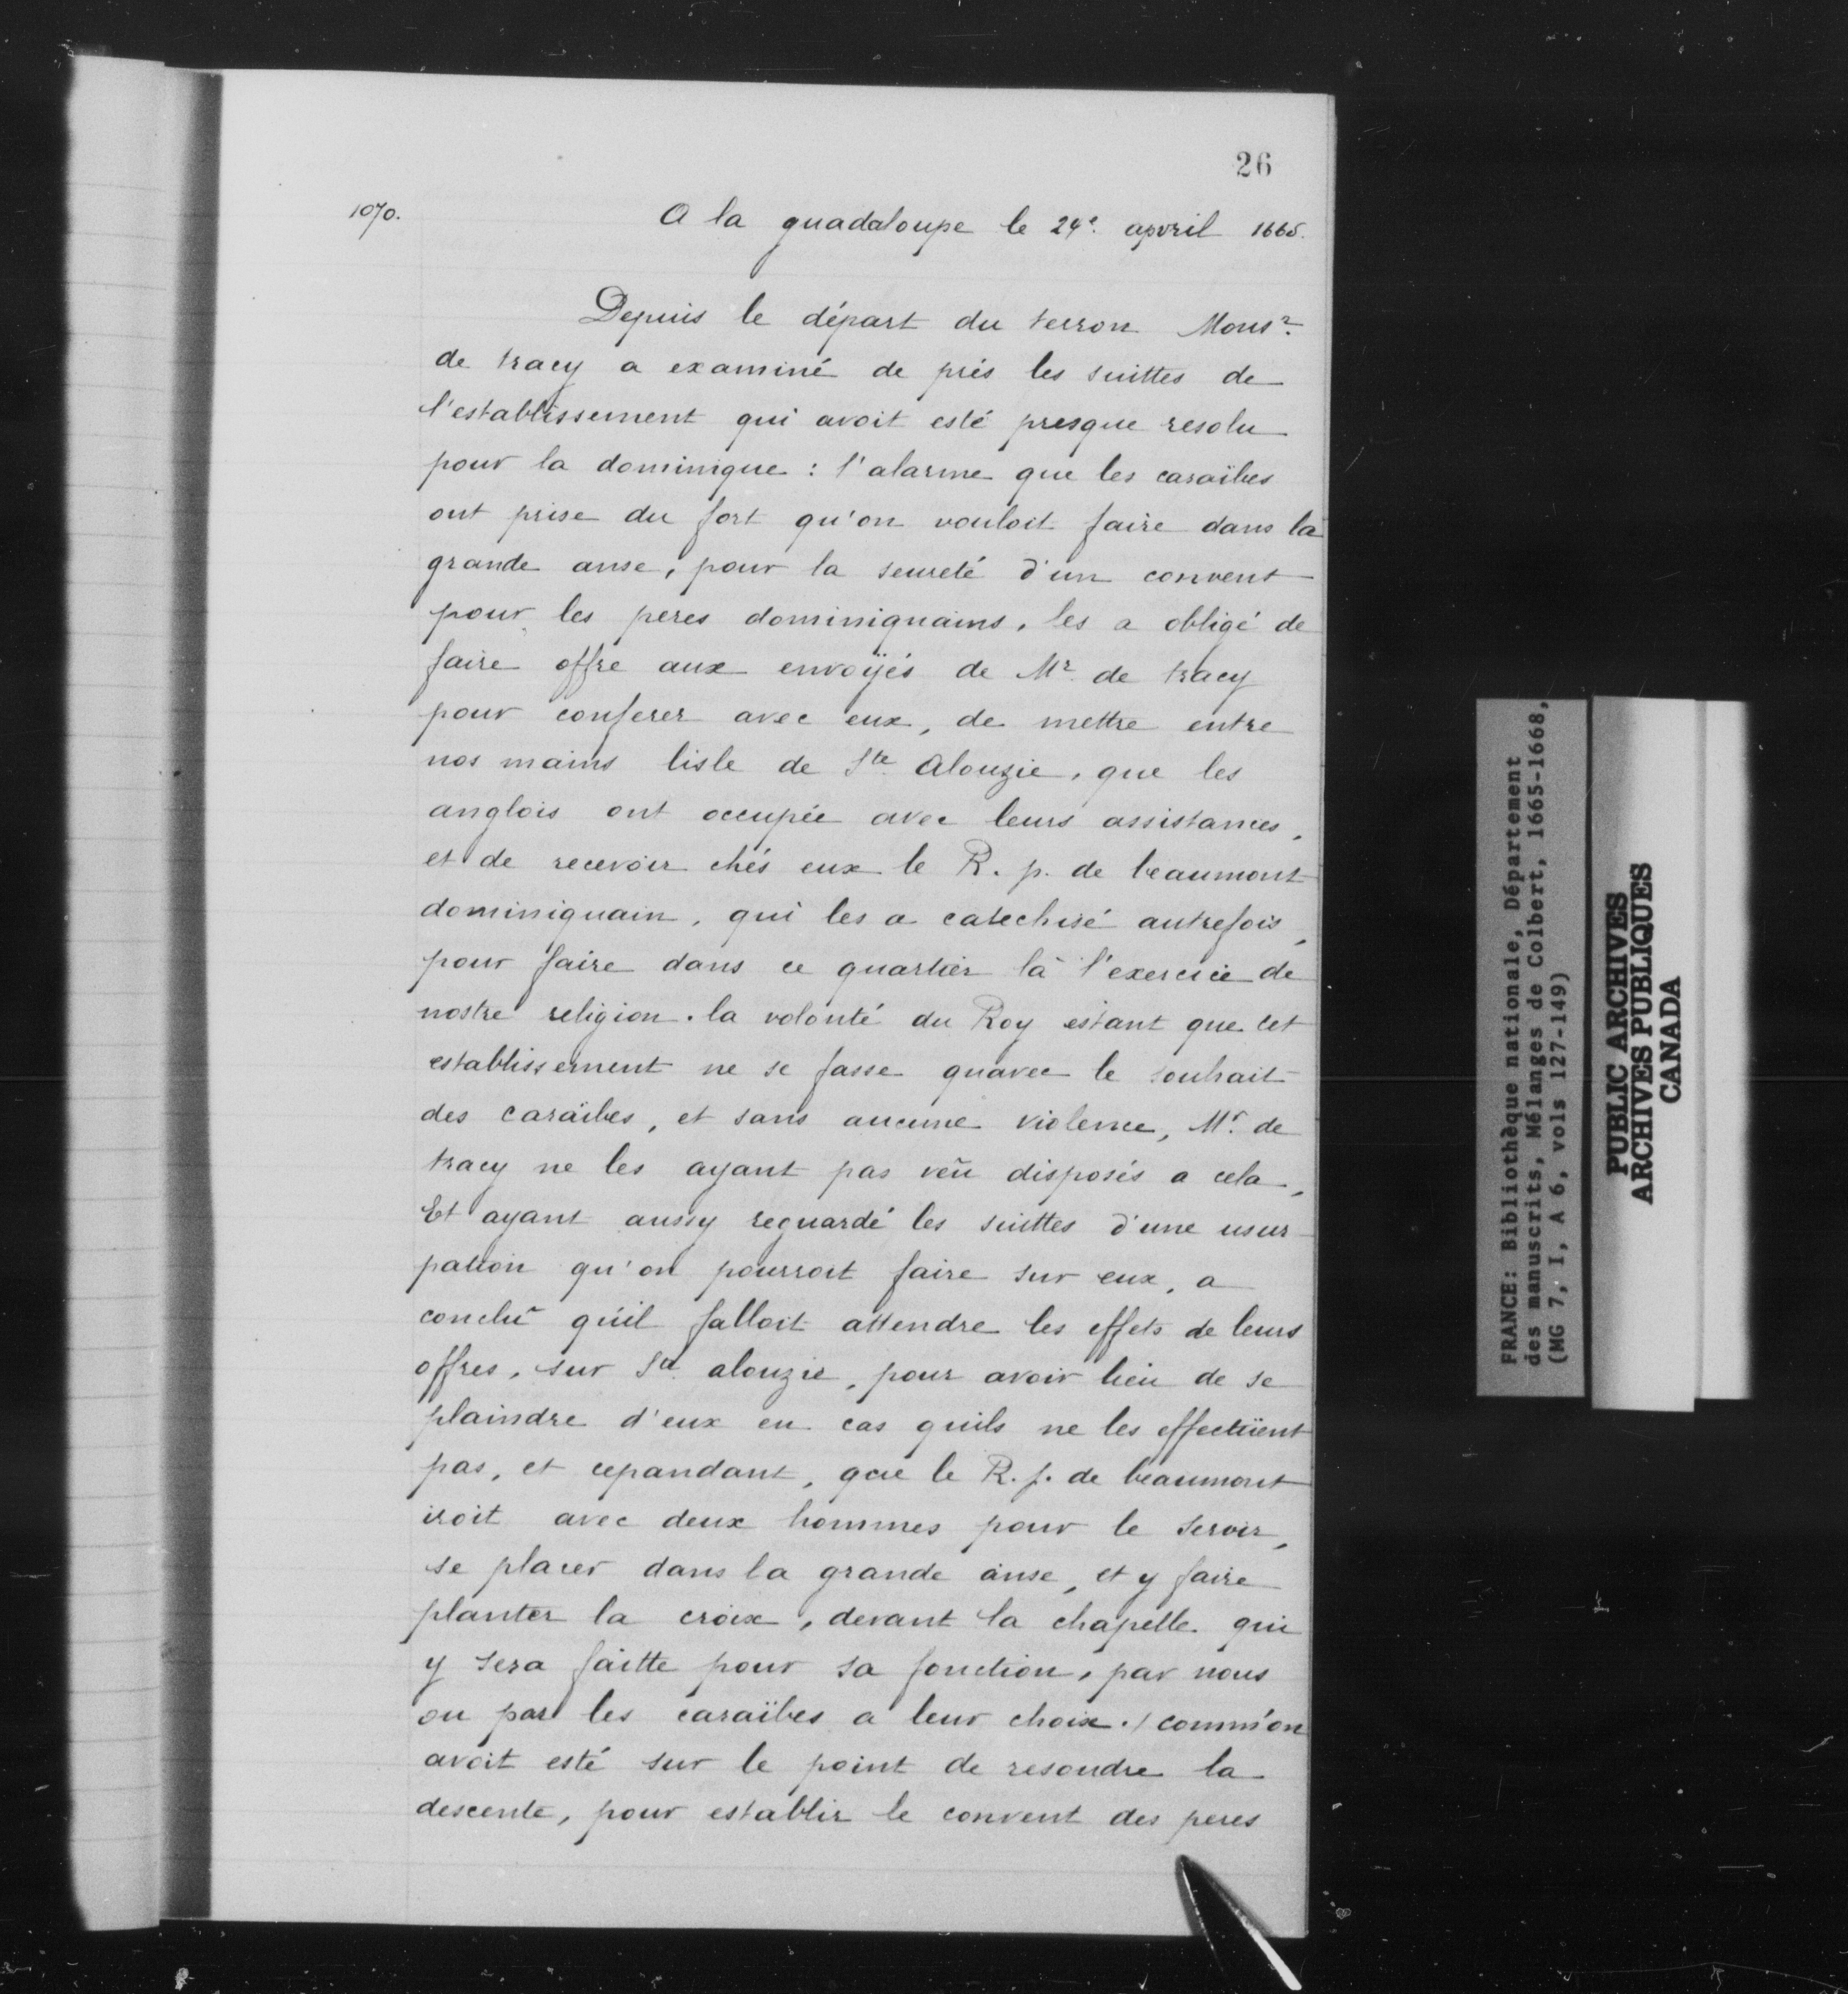 26
1070.
A la guadaloupe le 24e. apvril 1665.
Depuis le départ du terron Monsr.
de tracy a examiné de prés les suittes de
l'establissement qui avoit esté presque resolu
pour la dominique : l'alarme que les caraïbes
ont prise du fort qu'on vouloit faire dans la
grande anse, pour la seureté d'un convent
pour les peres dominiquains, les a obligé de
faire offre aux envoÿés de Mr. de tracy
pour conferer avec eux, de mettre entre
nos mains lisle de Ste Alouzie, que les
anglois ont occupée avec leurs assistances,
et de recevoir chés eux le R. p. de beaumont
dominiquain, qui les a catechisé autrefois,
pour faire dans ce quartier là l'exercice de
nostre religion. la volonté du Roy estant que cet
establissement ne se fasse quavec le souhait
des caraïbes, et sans aucune violence, Mr. de
tracy ne les ayant pas veü disposés a cela,
Et ayant aussy reguardé les suittes d'une usur
pation qu'on pourroit faire sur eux, a
conclu qu'il falloit attendre les effets de leurs
offres, sur Ste alouzie, pour avoir lieu de se
plaindre d'eux en cas qu'ils ne les effectüent
pas, et cepandant, que le R. p. de beaumont
iroit avec deux hommes pour le servir,
se placer dans la grande anse, et y faire
planter la croix, devant la chapelle qui
y sera faitte pour sa fonction, par nous
ou par les caraïbes a leur choix./ comm'on
avoit esté sur le point de resoudre la
descente, pour establir le convent des peres
FRANCE: Bibliothèque nationale, Département
des manuscrits, Mélanges de Colbert, 1665-1668,
(MG 7, I, A 6, vols 127-149)
PUBLIC ARCHIVES
ARCHIVES PUBLIQUES
CANADA